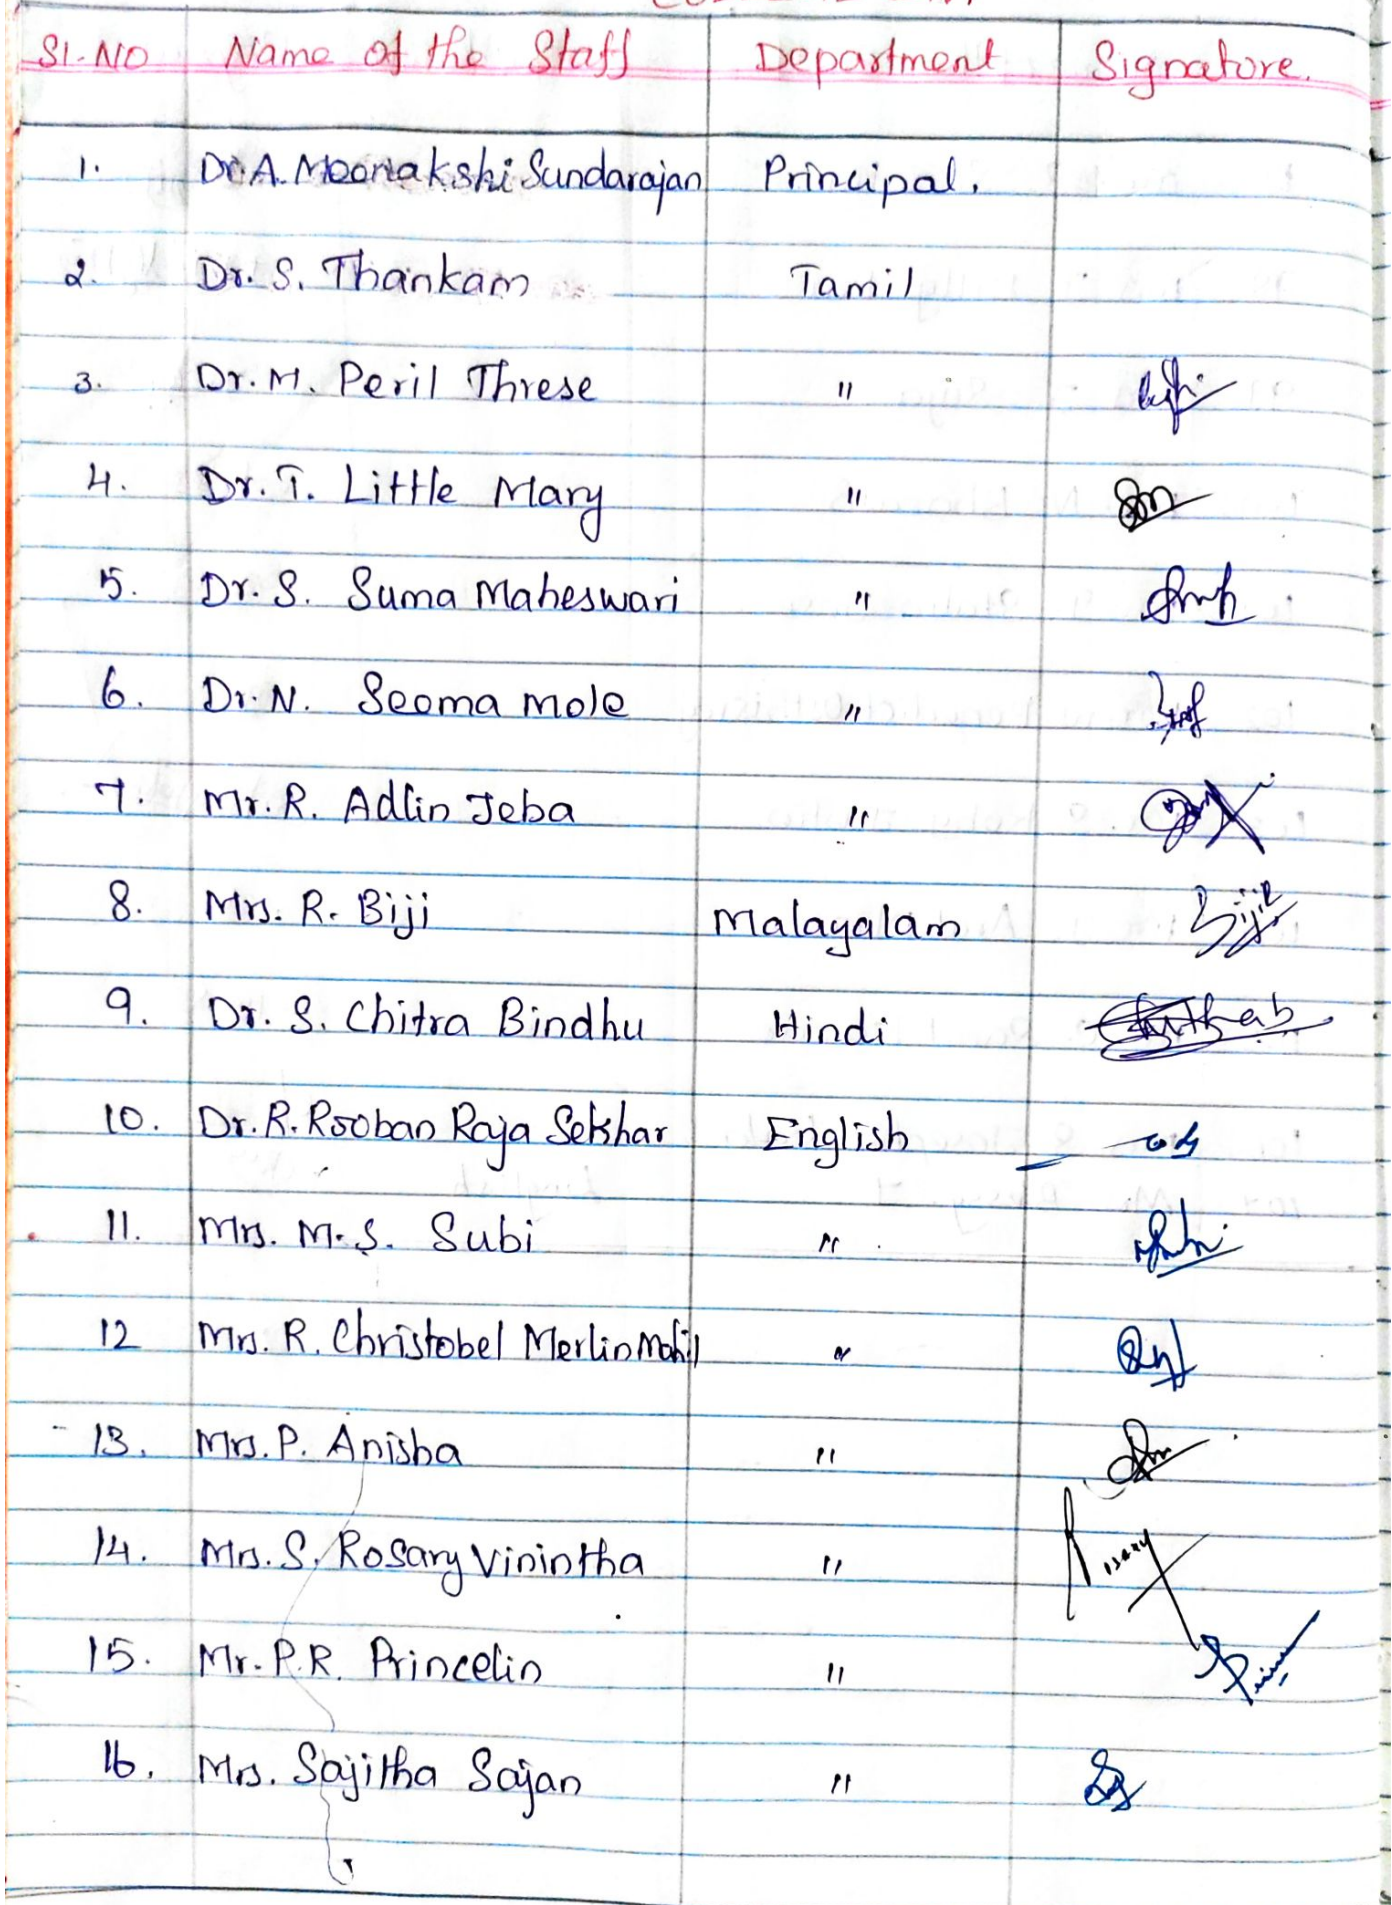 Sl. No Name of the Staff Department Signature.
1. Dr. A. Meenakshi Sundarajan Principal.
2. Dr. S. Thankam Tamil
3. Dr. M. Peril Threse "
4. Dr. T. Little Mary "
5. Dr. S. Suma Maheswari "
6. Dr. N. Seema Mole "
7. Mr. R. Adlin Jeba "
8. Mrs. R. Biji Malayalam Biji
9. Dr. S. Chitra Bindhu Hindi
10. Dr. R. Rooban Raja Sekhar English
11. Mrs. M.S. Subi "
12 Mrs. R. Christobel Merlin Mahil "
13. Mrs. P. Anisha "
14. Mrs. S. Rosary Vinintha " Rosary
15. Mr. P.R. Princelin "
16. Mrs. Sajitha Sajan "